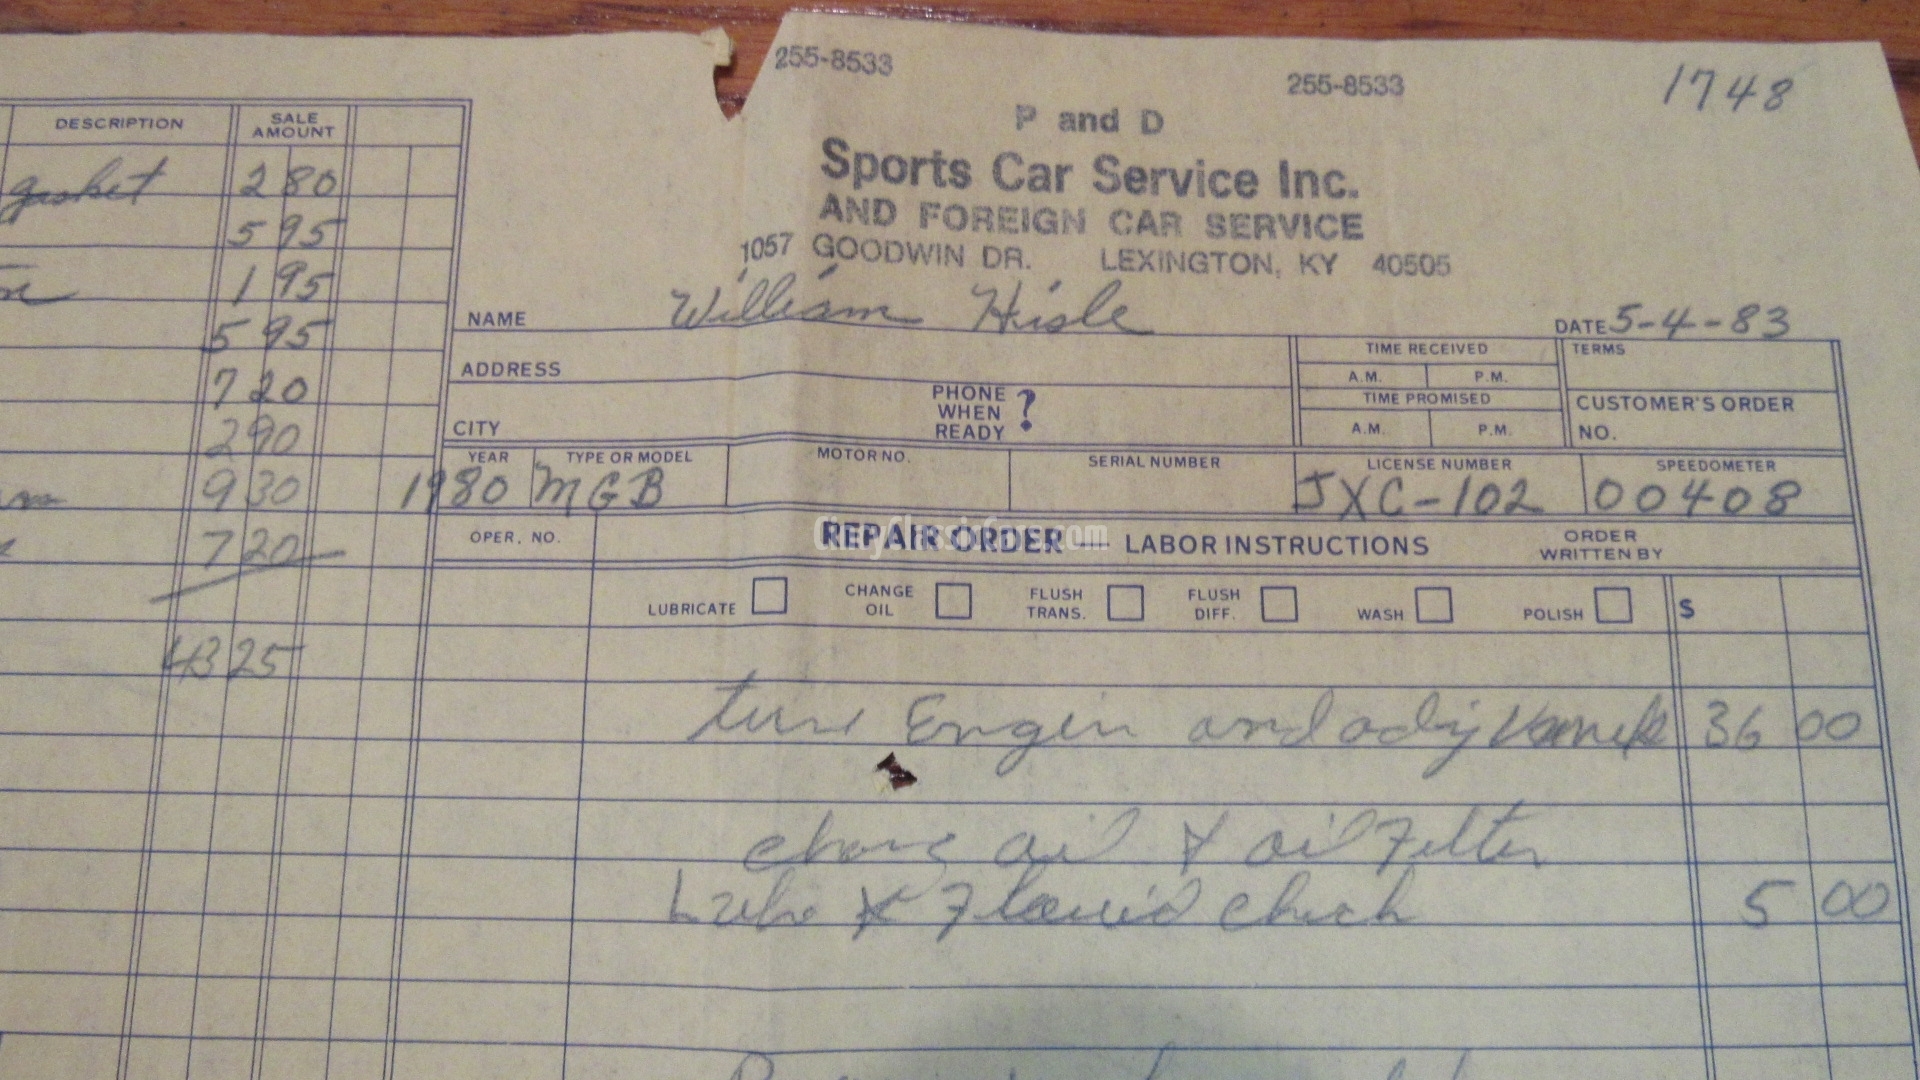 255-8533
255-8533
1748
P and D
Sports Car Service Inc.
AND FOREIGN CAR SERVICE
1057 GOODWIN DR. LEXINGTON, KY 40505
DESCRIPTION SALE AMOUNT
gasket 2 80
5 95
1 95
5 95
7 20
2 90
9 30
7 20
43 25
NAME William Hisle DATE 5-4-83
ADDRESS
TIME RECEIVED TERMS
A.M. P.M.
PHONE WHEN READY ?
TIME PROMISED CUSTOMER'S ORDER NO.
CITY A.M. P.M.
YEAR TYPE OR MODEL MOTOR NO. SERIAL NUMBER LICENSE NUMBER SPEEDOMETER
1980 MGB JXC-102 00408
OPER. NO. REPAIR ORDER — LABOR INSTRUCTIONS ORDER WRITTEN BY
GaryClassicCars.com
LUBRICATE CHANGE OIL FLUSH TRANS. FLUSH DIFF. WASH POLISH $
tune Engin and 36 00
chang oil & oil Filter
Lube & Flauid check 5 00